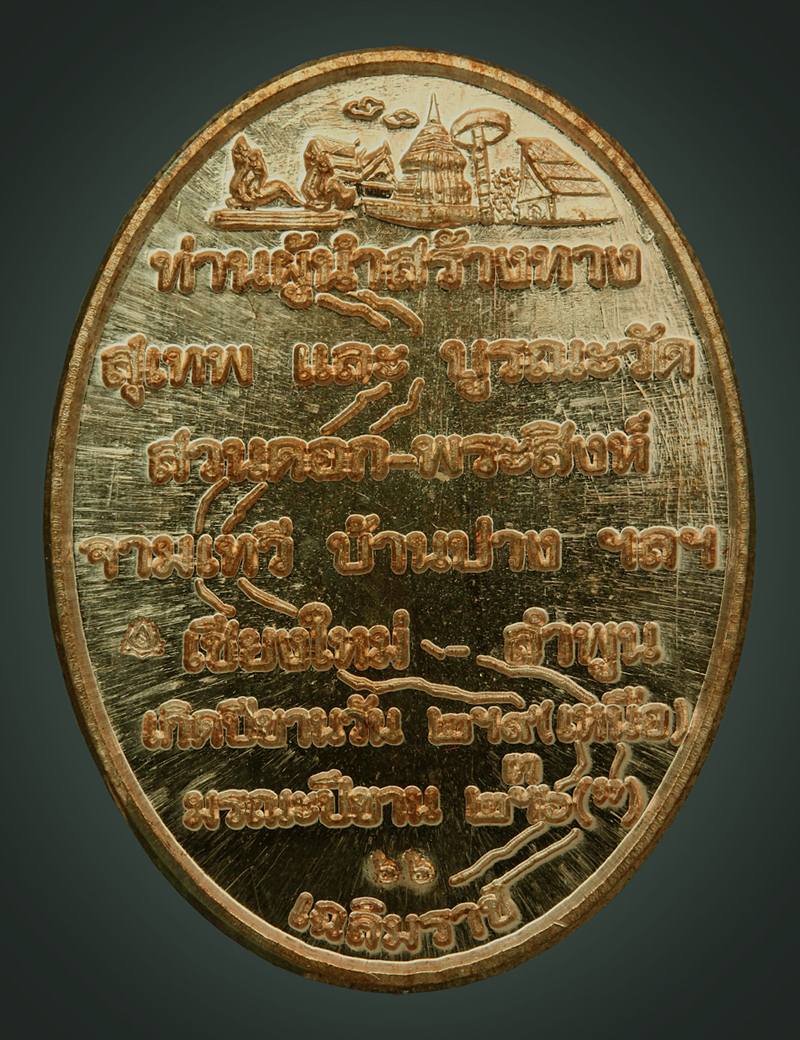 ท่านผู้นำสร้างทาง
สุเทพ และ บูรณะวัด
สวนดอก-พระสิงห์
จามเทวี บ้านปาง ฯลฯ
เชียงใหม่ - ลำพูน
เกิดปีขานวัน (เหนือ)
มรณะปีขาน
๖๖
เฉลิมราช